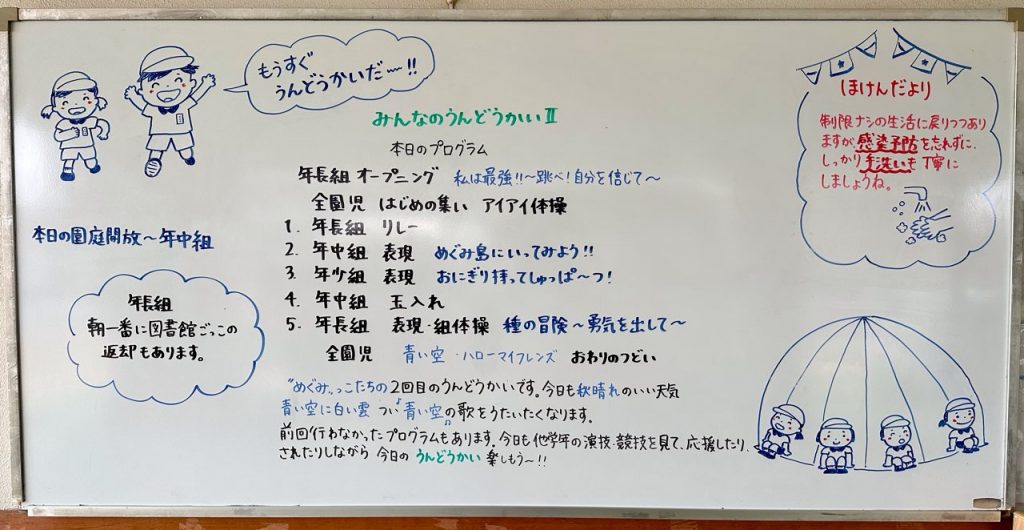 もうすぐ
うんどうかいだー!!
みんなのうんどうかいⅡ
本日のプログラム
年長組 オープニング 私は最強!!〜跳べ!自分を信じて〜
全園児 はじめの集い アイアイ体操
1. 年長組 リレー
2. 年中組 表現 めぐみ島にいってみよう!!
3. 年少組 表現 おにぎり持ってしゅっぱ〜つ!
4. 年中組 玉入れ
5. 年長組 表現・組体操 種の冒険〜勇気を出して〜
全園児 青い空・ハローマイフレンズ おわりのつどい
"めぐみ"っこたちの2回目のうんどうかいです。今日も秋晴れのいい天気
青い空に白い雲 つい"青い空"の歌をうたいたくなります。
前回行わなかったプログラムもあります。今日も他学年の演技・競技を見て、応援したり、
されたりしながら 今日の うんどうかい 楽しもう〜!!
本日の園庭開放〜年中組
年長組
朝一番に図書館ごっこの
返却もあります。
ほけんだより
制限ナシの生活に戻りつつあり
ますが、感染予防を忘れずに、
しっかり手洗いも丁寧に
しましょうね。